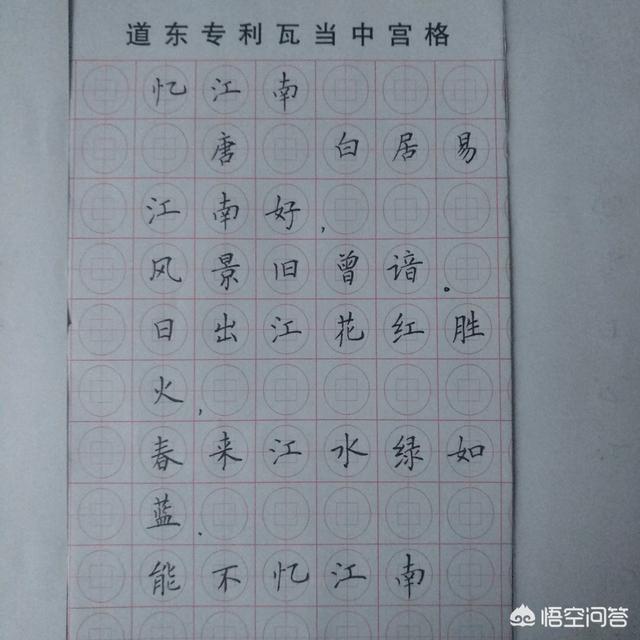 道东专利瓦当中宫格
忆江南
唐 白居易
江南好，
风景旧曾谙。
日出江花红胜
火，
春来江水绿如
蓝.
能不忆江南
悟空问答